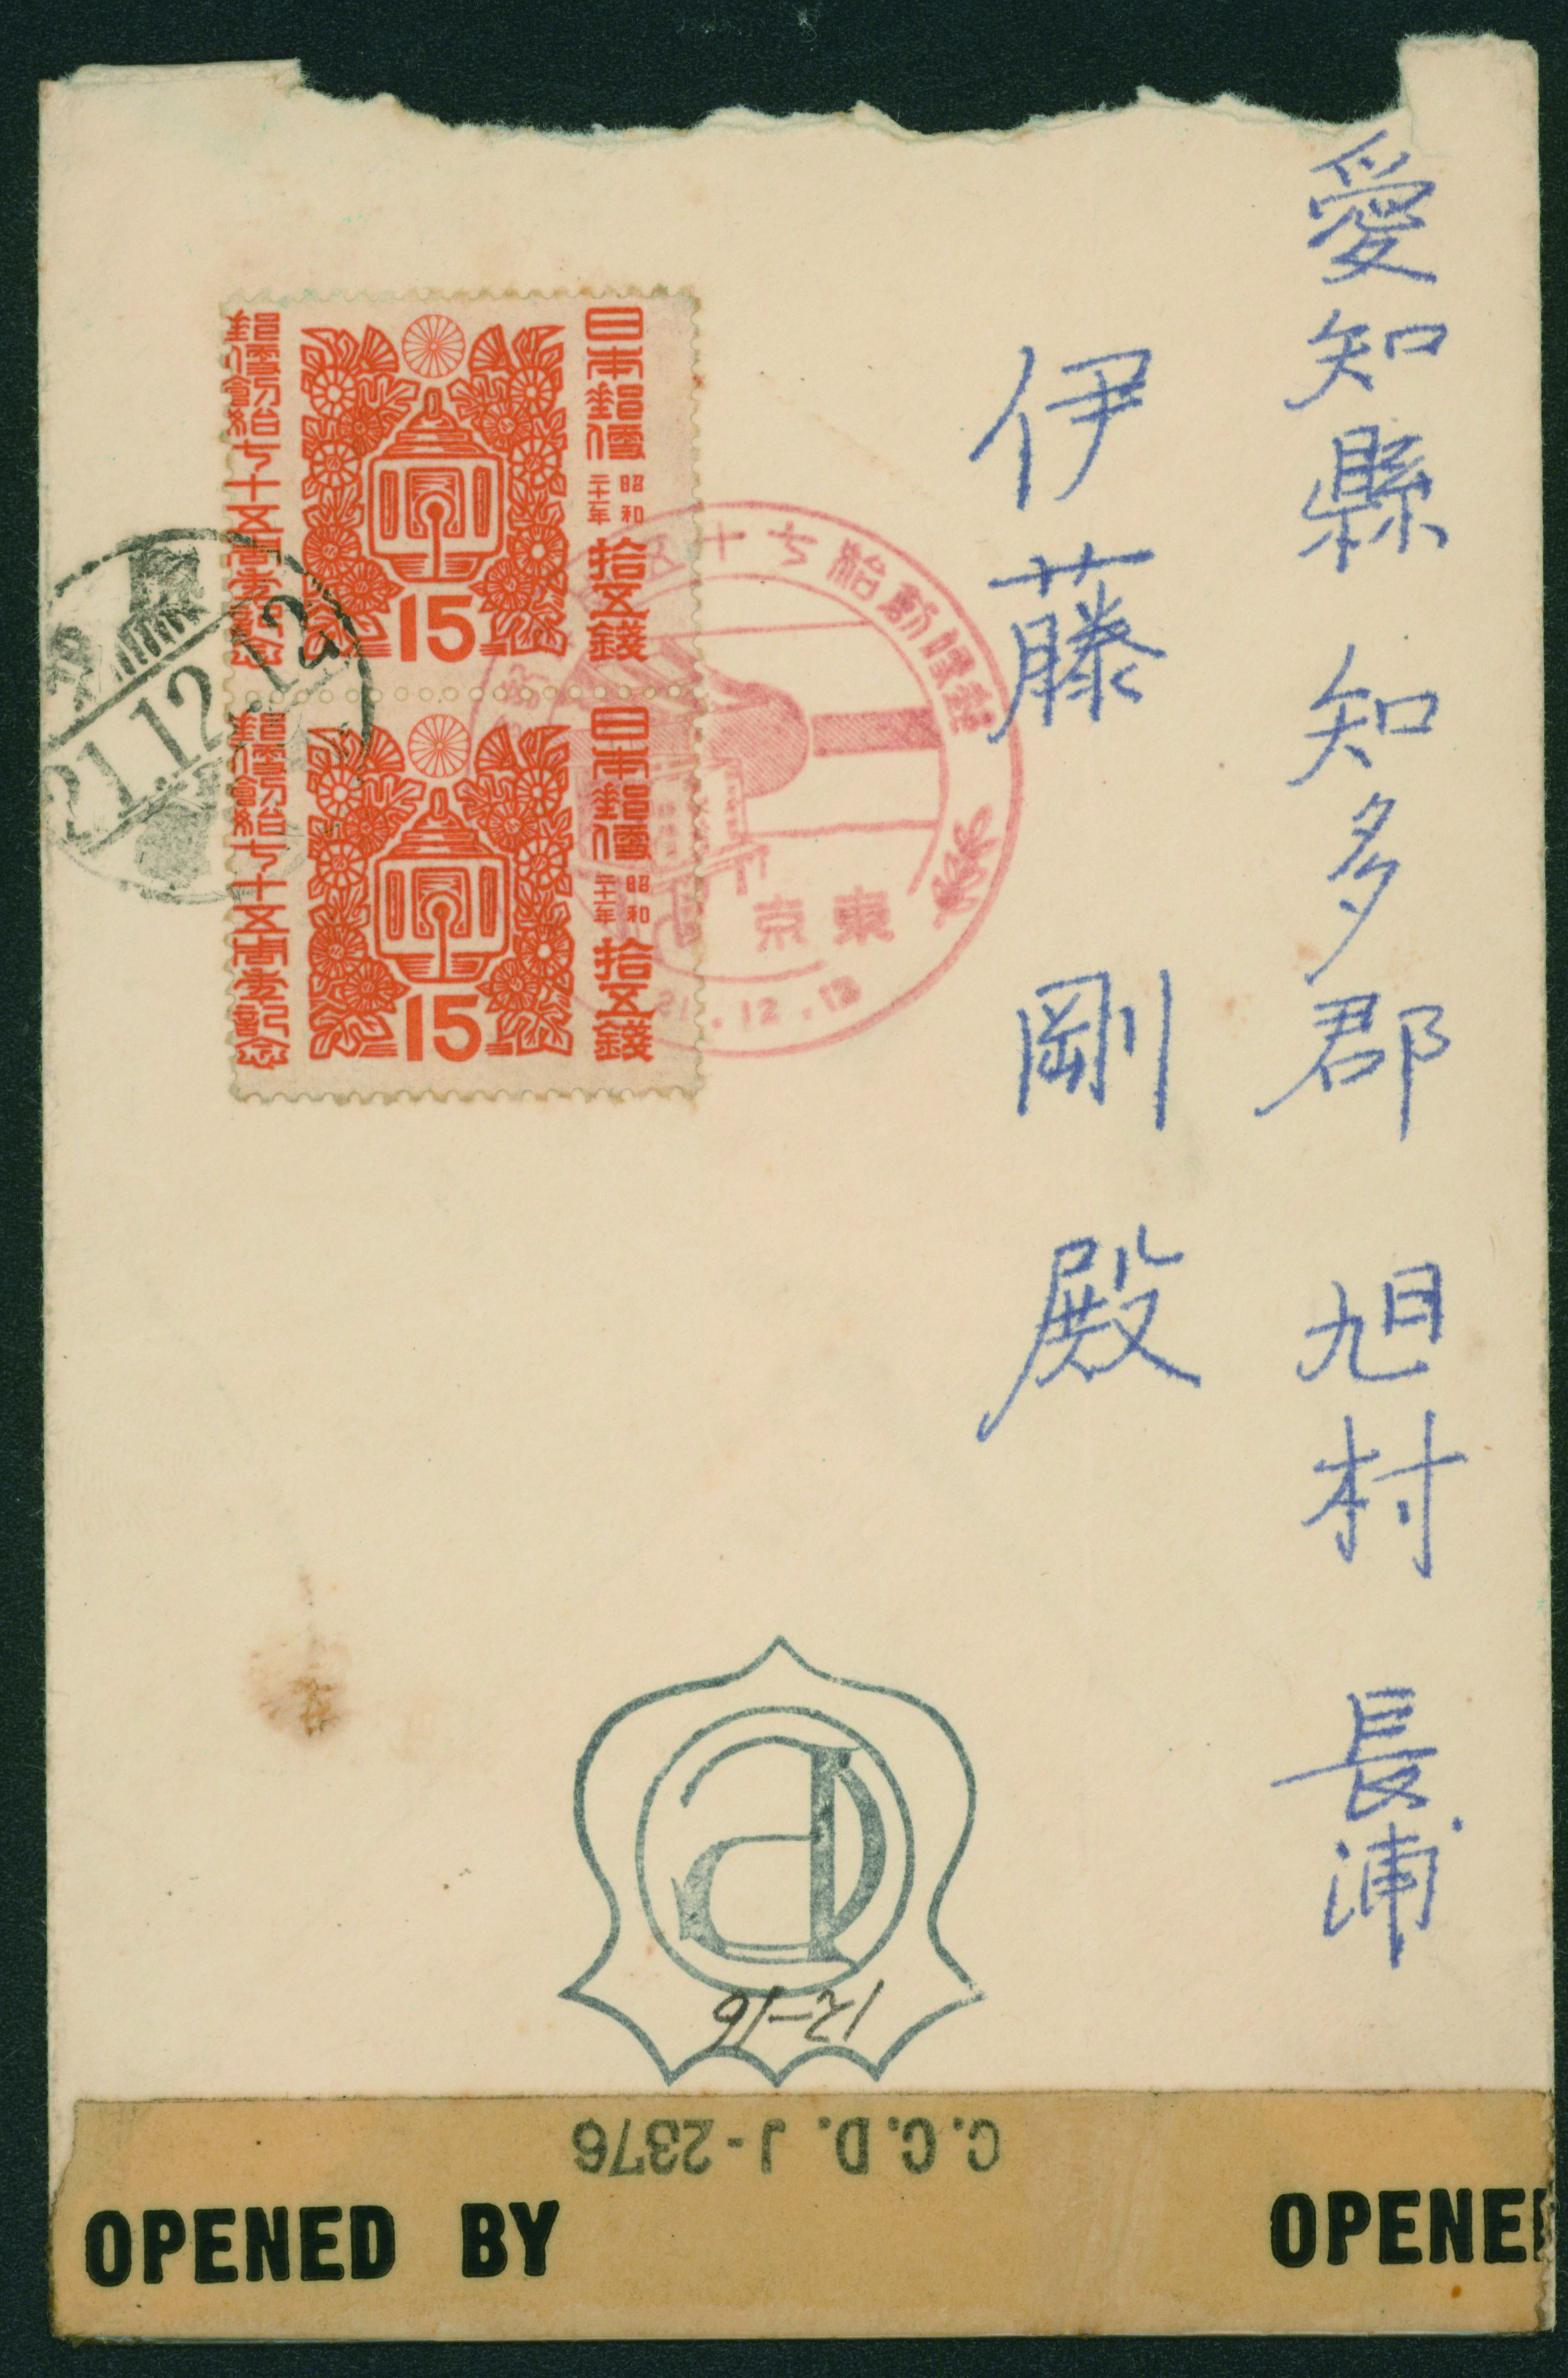 愛知縣 知多郡 旭村 長浦
伊藤 剛 殿
日本郵便
昭和
二十一年
拾五錢
15
郵便創始七十五周年記念
日本郵便
昭和
二十一年
拾五錢
15
郵便創始七十五周年記念
郵便創始七十五
東京
21.12.12
21.12.12
91-21
C.C.D. J-2376
OPENED BY
OPENED